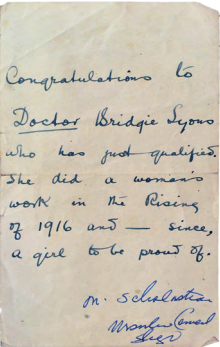 Congratulations to
Doctor Bridgie Lyons
who has just qualified.
She did a woman's
work in the Rising
of 1916 and — since,
a girl to be proud of.
M.
Sligo